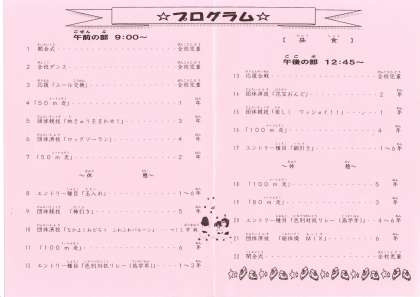 ☆プログラム☆
午前の部 9:00～
1 開会式 全校児童
2 全校ダンス 全校児童
3 応援「エール交換」 全校児童
4 「50m走」 1年
5 団体競技 3年
6 団体演技 4年
7 「50m走」 2年
～休憩～
8 エントリー種目「玉入れ」 1～6年
9 団体競技「棒引き」 5年
10 団体演技
11 「100m走」 6年
12 エントリー種目「色別対抗リレー(低学年)」 1～3年
【昼食】
午後の部 12:45～
13 応援合戦 全校児童
14 団体演技「花笠おんど」 2年
15 団体競技 1年
16 「100m走」 4年
17 エントリー種目「綱引き」 1～6年
～休憩～
18 「100m走」 5年
19 「80m走」 3年
20 エントリー種目「色別対抗リレー(高学年)」 4～6年
21 団体演技「組体操 MIX」 6年
22 閉会式 全校児童